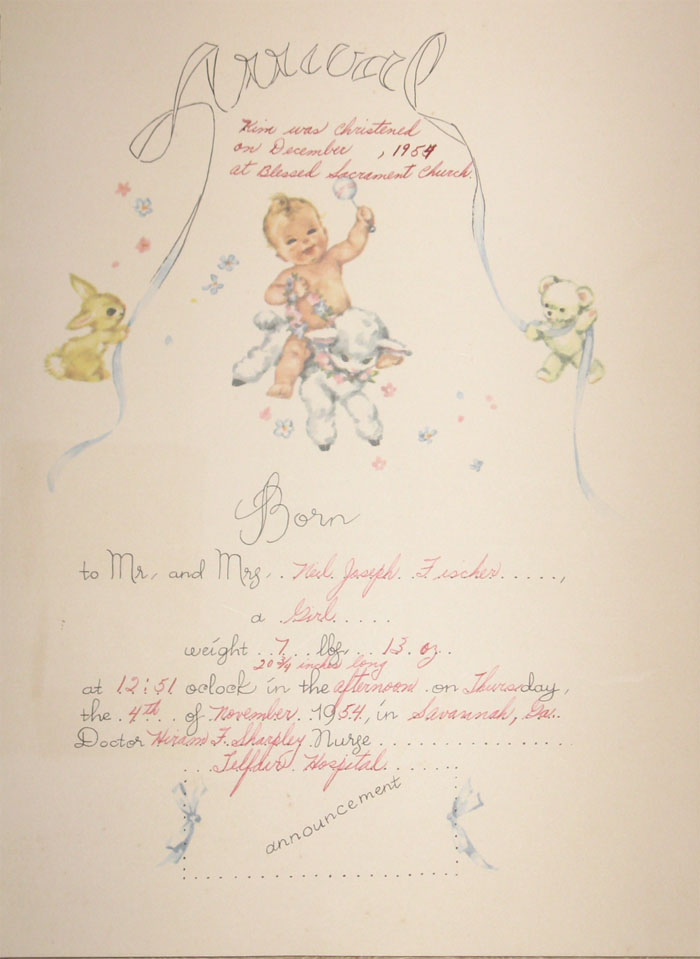 Arrival
Kim was christened
on December , 1954
at Blessed Sacrament Church.
Born
to Mr. and Mrs. . Neil Joseph . Fischer . . . . . ,
a Girl . . . . .
weight . . 7 . . lbs. . . 13 . oz. . .
20 3/4 inches long
at 12:51 oclock in the afternoon . on Thursday,
the . 4th . . of November . . 1954, in Savannah, Ga..
Doctor Hiram F. Sharpley Nurse . . . . . . . . . . . . . . . . . . .
. . . Telfair . Hospital . . . . . . . .
announcement